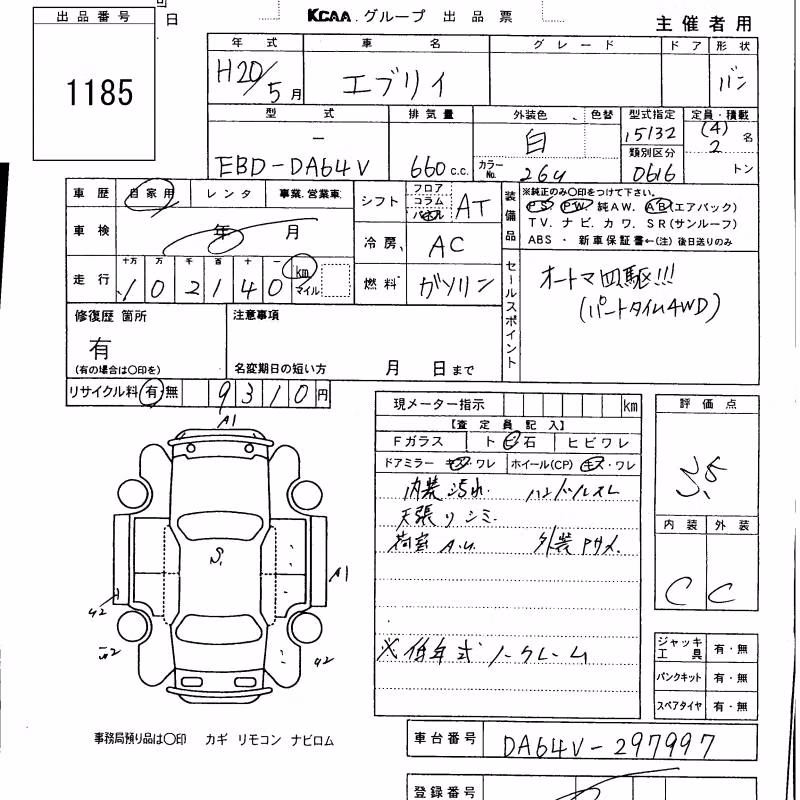 出品番号 日 KCAA.グループ 出品票 主催者用
1185
年式 車名 グレード ドア 形状
H20/5月 エブリイ バン
型式 排気量 外装色 色替 型式指定 定員・積載
ー 白 15132 (4) 2 名
類別区分
EBD-DA64V 660 c.c. カラーNo. 26U 0616 トン
車歴 自家用 レンタ 事業.営業車
シフト フロア コラム パネル AT
装備品 ※純正のみ○印をつけて下さい。
PS PW 純AW. AB(エアバック)
TV. ナビ. カワ. SR(サンルーフ)
ABS ・ 新車保証書←(注)後日送りのみ
車検 年 月
冷房 AC
走行 十万 万 千 百 十 一
102140 km マイル
燃料 ガソリン
セールスポイント オートマ四駆!!!
(パートタイム4WD)
修復歴 箇所 注意事項
有
(有の場合は○印を) 名変期日の短い方 月 日まで
リサイクル料 有・無 9310円
現メーター指示 km
【査定員記入】
Fガラス トビ石 ヒビワレ
ドアミラー キズ・ワレ ホイール(CP) キズ・ワレ
内装汚れ. ハンドルスレ
天張りシミ.
荷室 A.U. 外装Pサメ.
※低年式ノークレーム
評価点
3.5
内装 外装
C C
ジャッキ工具 有・無
パンクキット 有・無
スペアタイヤ 有・無
A1
S.
A1
U2
U2
U2
事務局預り品は○印 カギ リモコン ナビロム
車台番号 DA64V-297997
登録番号